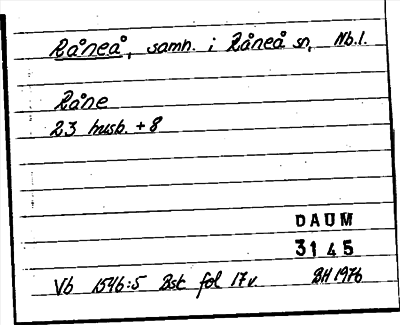 Råneå, samh. i Råneå sn, Nb.l.
Råne
23 husb. + 8
DAUM
3145
Vb 1546:5 Bst fol 17v. BH 1976